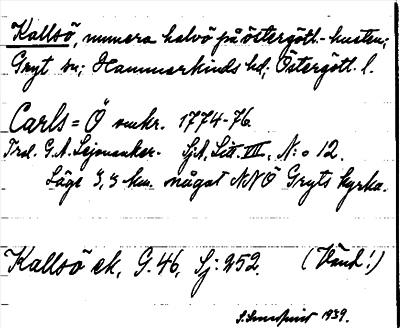 Kallsö, numera halvö på östergötl.-kusten;
Gryt sn; Hammarkinds hd; Östergötl. l.
Carls=Ö omkr. 1774-76.
Trol. G. A. Lejonanker. Sjk, Litt. III, N:o 12.
Läge 3,3 km. något NNÖ Gryts kyrka.
Kallsö ek, G. 46, Sj: 252. (Vänd!)
1939.